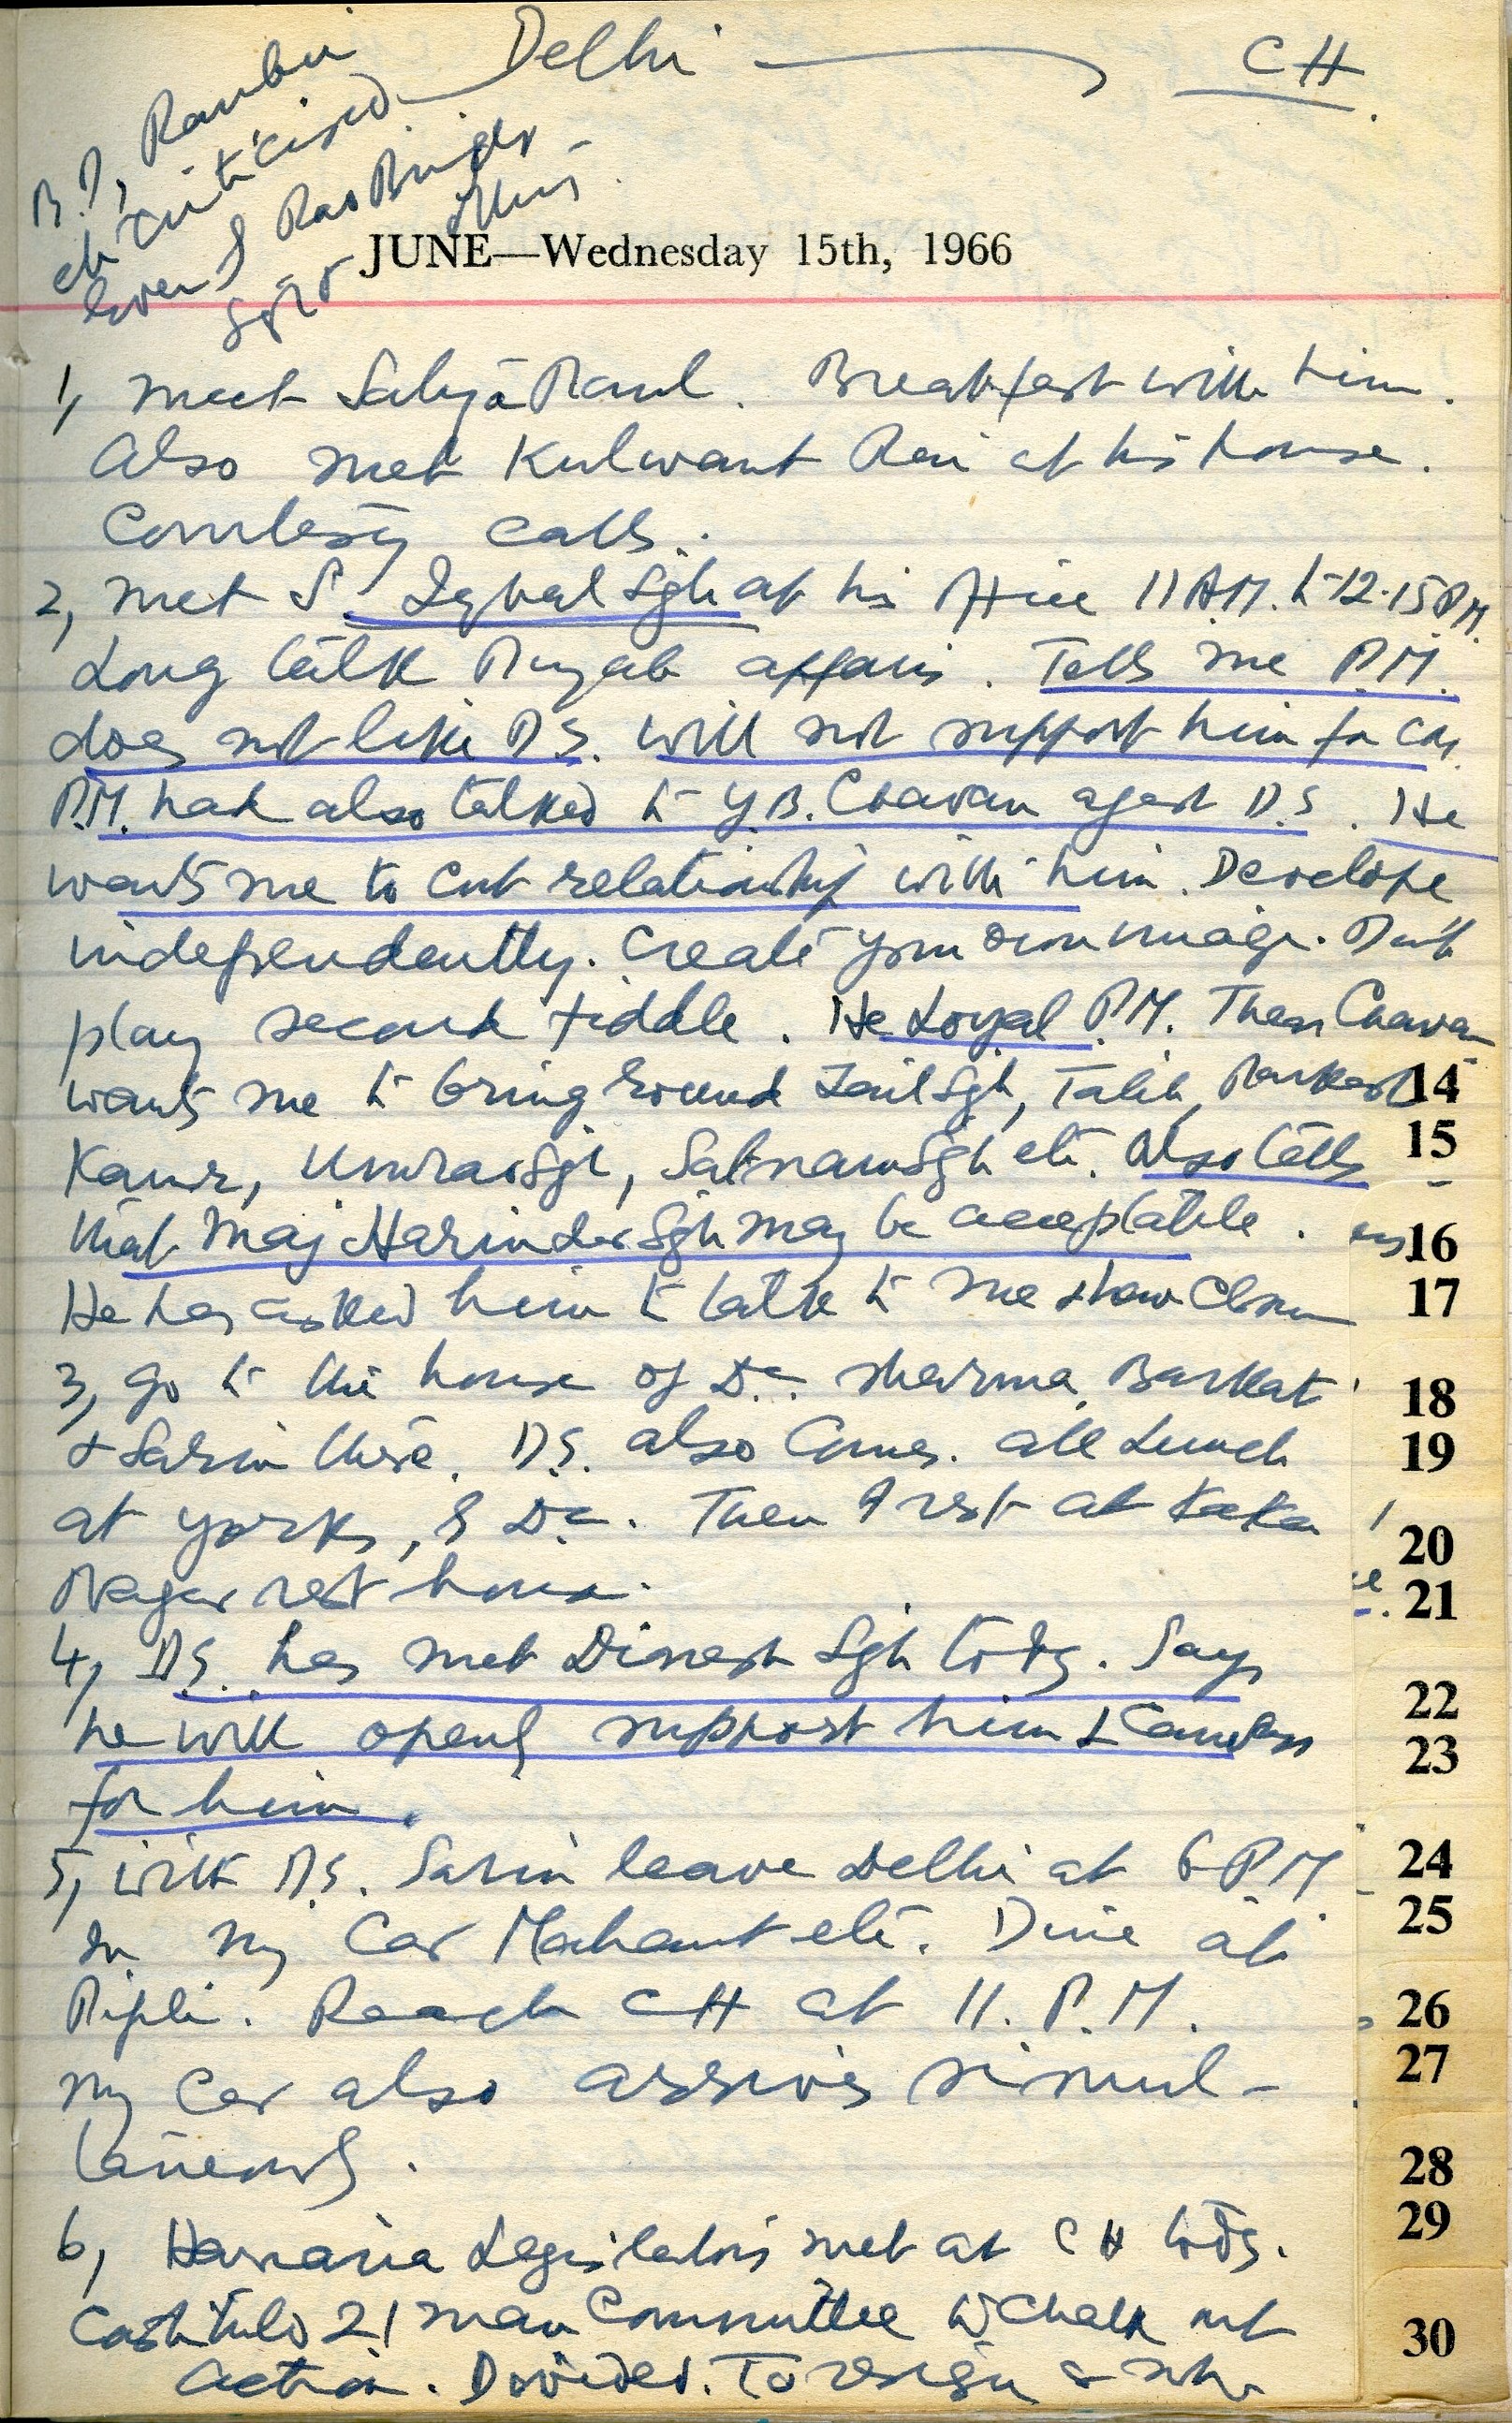 Delhi CH.
B.D, Ranbir
etc criticised
even Rao Birinder
Sgh
JUNE—Wednesday 15th, 1966
1, Meet Satya Paul. Breakfast with him.
Also met Kulwant Rai at his house.
Courtesy calls.
2, Met S. Iqbal Sgh at his office 11 A.M. to 12.15 P.M.
Long talk Punjab affairs. Tells me P.M.
does not like D.S. Will not support him for CM.
P.M. had also talked to Y.B. Chavan against D.S. He
wants me to cut relationship with him. Develope
independently. Create your own image. Don't
play second fiddle. He Loyal P.M. Then Chavan
wants me to bring round Zail Sgh, Talib, Parkash
Kaur, Umrao Sgh, Satnam Sgh etc. Also tells
that Maj Harinder Sgh may be acceptable.
He has asked him to talk to me &
3, go to the house of Dr. Sharma, Barkat
& Sarin there. D.S. also comes. All Lunch
at Yorks, & Dr. Then I rest at Kaka
Nagar rest house.
4, D.S. has met Dinesh Sgh today. Says
he will openly support him & canvass
for him.
5, With D.S. Sarin leave Delhi at 6 P.M
In my Car Mahant etc. Dine at
Pipli. Reach CH at 11. P.M.
My Car also arrives simul-
taneously.
6, Harnana Legislators met at CH today.
Constituted 21 man Committee to Chalk out
action. Divided. To resign or not.
14
15
16
17
18
19
20
21
22
23
24
25
26
27
28
29
30